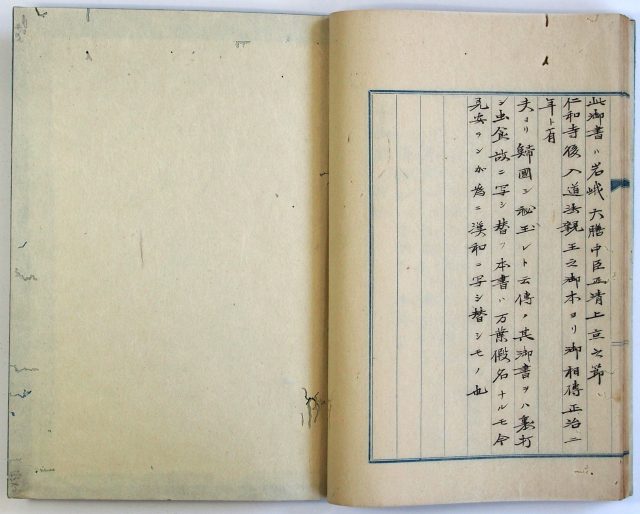 此御書ハ岩峨大膳中臣正清上立之節
仁和寺後入道法親王之御本ヨリ御相傳正治二
年ト有
夫ヨリ帰國シ秘王レト云傳ク其御書ヲハ裏打
シ虫食故ニ写シ替フ本書ハ万葉假名ナルモ今
見安ランガ為ニ漢和ニ写シ替シモノ也